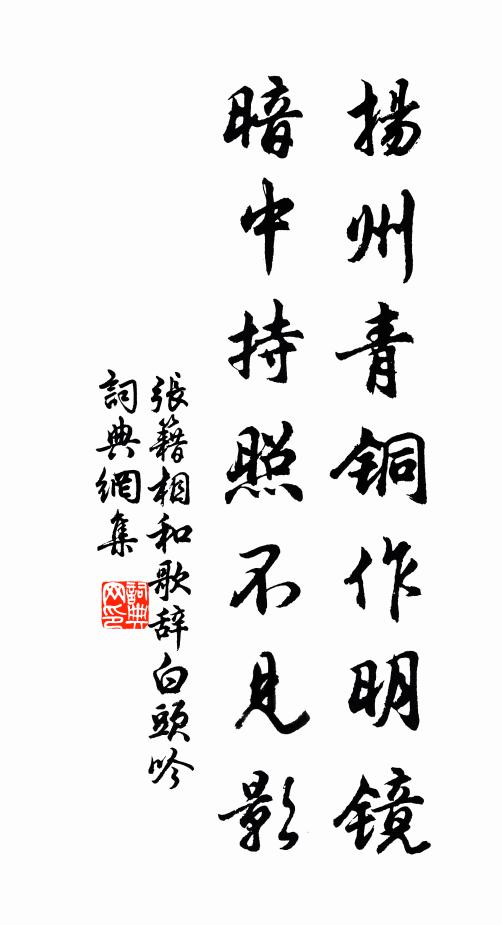 揚州青铜作明鏡
暗中持照不見影
張籍相和歌辞白頭吟
詞典網集
詞典网印